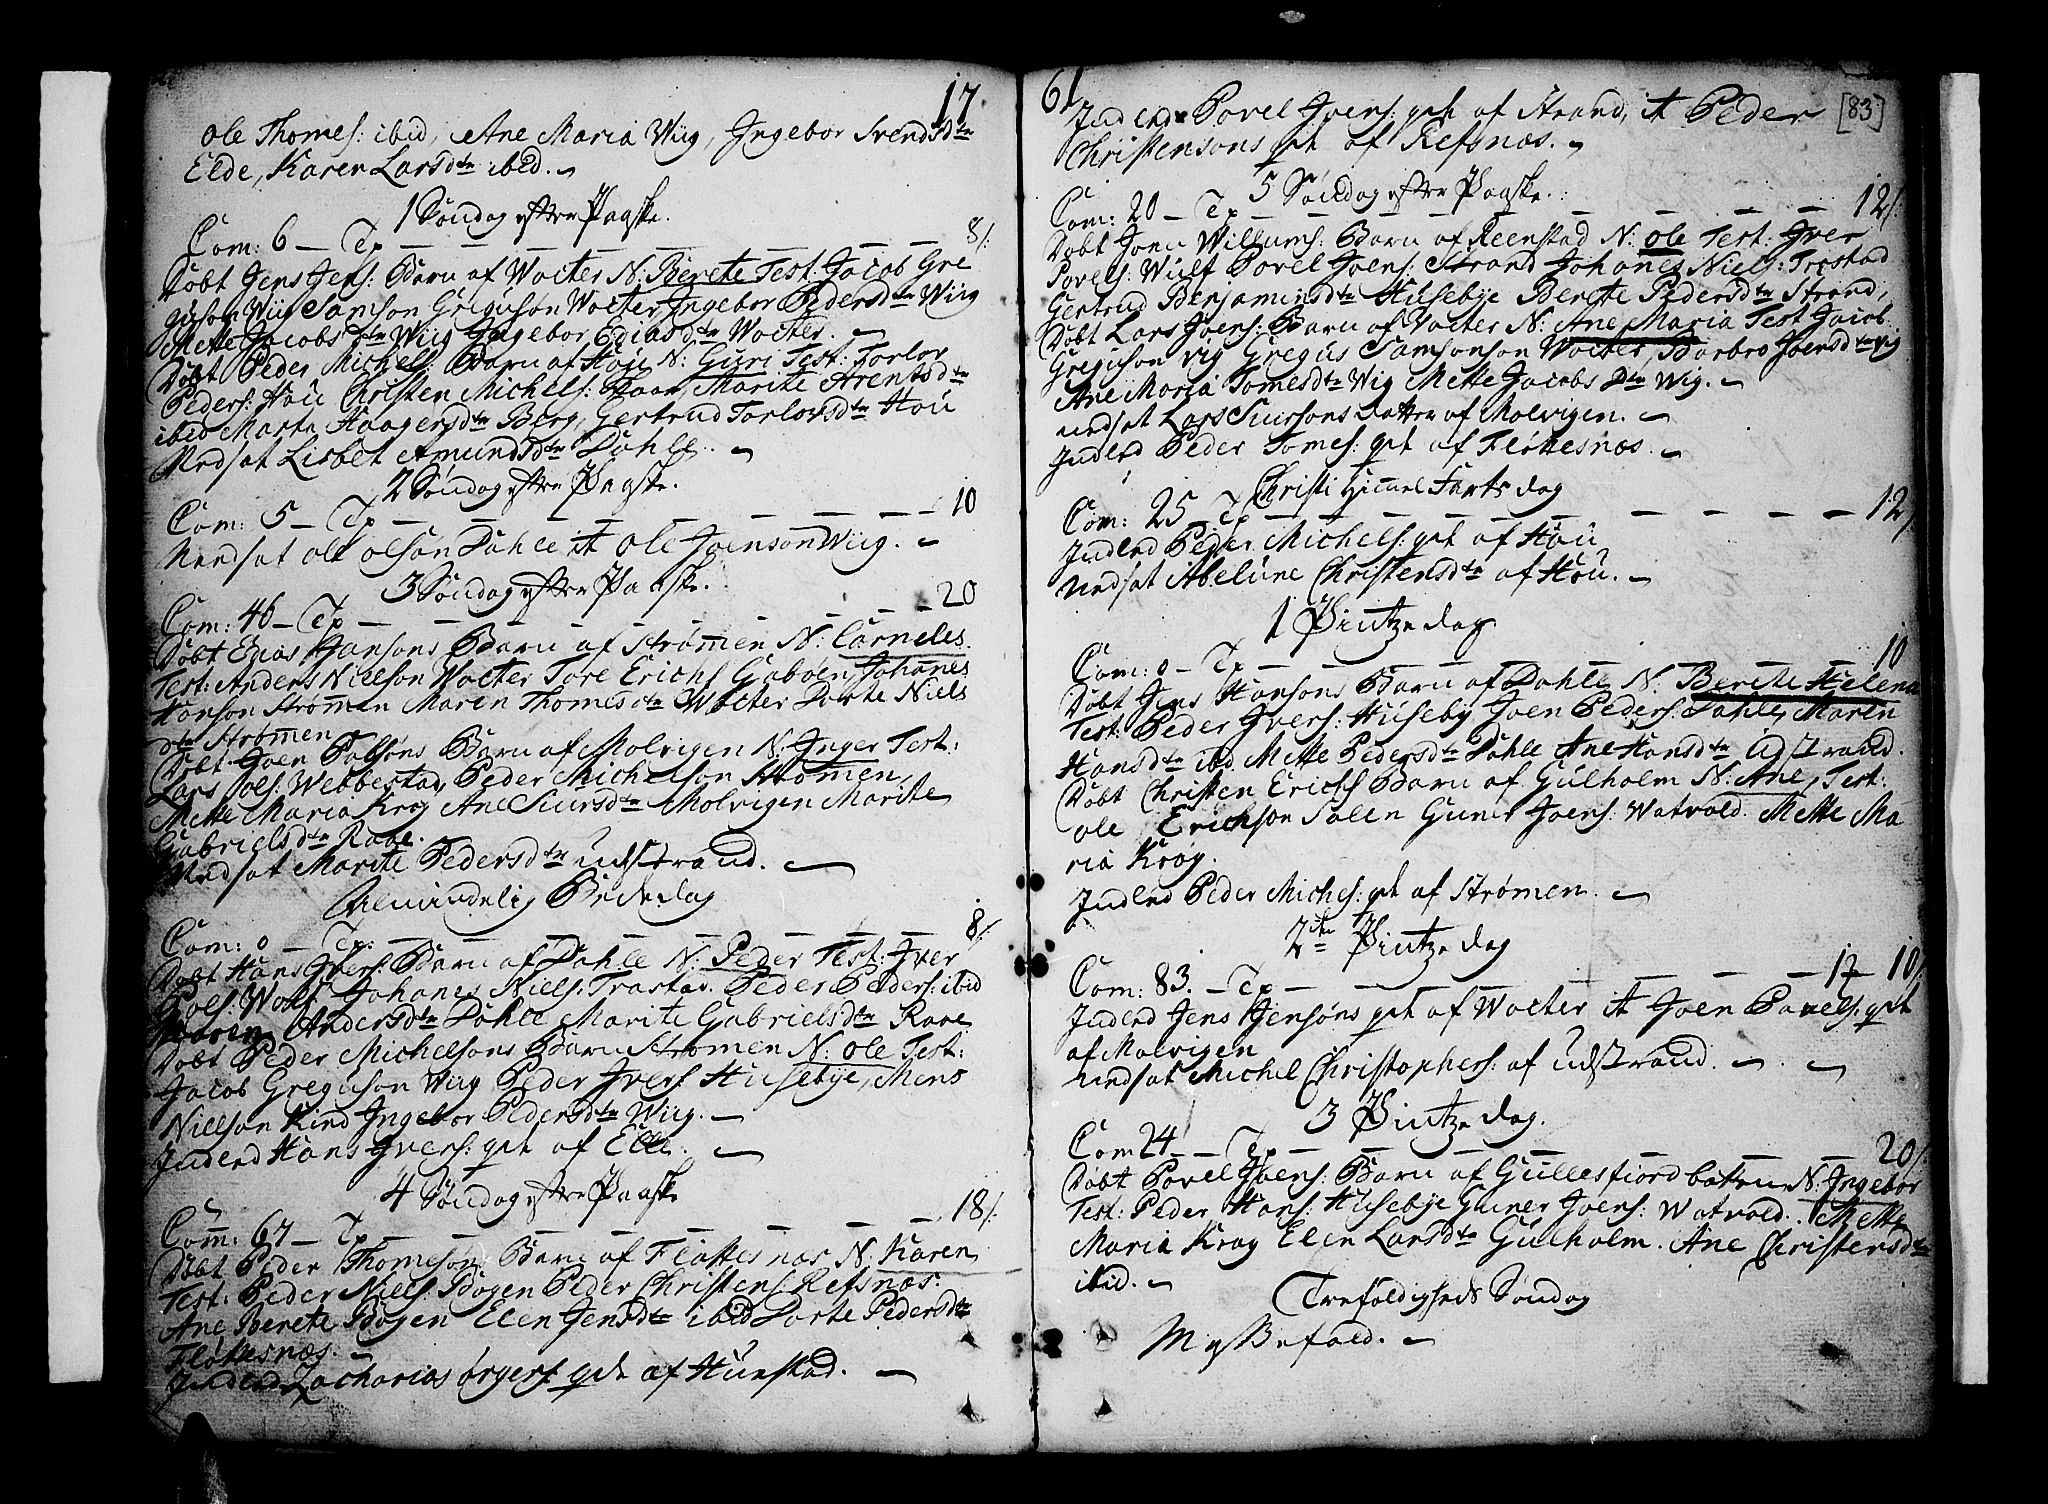 17.
Ole Thomes: ibid, Ane Maria Wiig, Ingebor Svendsdtr
Elde, Karen Larsdtr ibid.
1 Søndag efter Paaske.
Com: 6 – Tp – – – – 8/:
Døbt Jens Jens: Barn af Wolter N: Berete Test: Jacob Gre
guson Wiig Samson Greguson Wolter Ingebor Pedersdtr Wiig
Mette Jacobsdtr Wiig Ingebor Ediasdtr Wolter.
Døbt Peder Michels: Barn af Høu N: Guri Test: Torlov
Peders: Høu Christen Michels: Marite Arentsdtr
ibid Marta Haagersdtr Berg, Gertrud Torlovsdtr Høu
Nedsat Lisbet Amundsdtr Dahle.
2 Søndag efter Paaske.
Com: 5 – Tp – – – – 10
Nedsat Ole Olson Dahle it Ole Joenson Wiig.
3 Søndag efter Paaske.
Com: 46 – Tp – – – – 20
Døbt Edias Hansons Barn af Strømen N: Carneles.
Test: Anders Nielson Wolter Tore Erichs Gabøen Johanes
Hanson Strømen Maren Thomesdtr Wolter Dorte Niels
dtr Strømen
Døbt Joen Polsøns Barn af Molvigen N: Inger Test:
Lars Joels: Webbestad, Peder Michelson Strømen,
Mette Maria Krog Ane Siursdtr Molvigen Marite
Gabrielsdtr Raae.
Nedsat Marite Pedersdtr Udstrand.
Almindelig Bededag
Com: 0 – Tp: – – – – 8/:
Døbt Hans Ivers: Barn af Dahle N: Peder Test: Iver
Poels: Wolf Johanes Niels: Trastad. Peder Peders: ibid
Maren Andersdtr Dahle Marite Gabrielsdtr Raae
Døbt Peder Michelsons Barn Strømen N: Ole Test:
Jacob Greguson Wiig Peder Ivers Husebye, Mens
Nielson Kind Ingebor Pedersdtr Wiig.
Indled Hans Ivers: qvt af Elde.
4 Søndag efter Paaske
Com: 67 – Tp – – – – 18/:
Døbt Peder Thomesøn: Barn af Fløttesnas N: Karen
Test: Peder Niels: Bogen Peder Christens Refsnæs:
Ane Berete Bogen Elen Jensdtr ibid Dorte Pedersdtr
Fløttesnæs.
Indled ZachariasØrgers qvt af Hunstad.
61
[83]
Indled Povel Joens: qvt af Strand, it Peder
Christensons qvt af Refsnæs.
5 Søndag efter Paaske.
Com: 20 – Tp – – – – 12/:
Døbt Joen Willums: Barn af Reenstad N: Ole Test: Iver
Povels: Wulf Povel Joens: Strand Johanes Niels: Trastad
Gertrud Benjaminsdtr Husebye Berete Pedersdtr Strand,
Døbt Lars Joens: Barn af Wolter N: Ane Maria Test Jacob
Greguson Vig Gregus Samsonson Wolter, Barbro Joensdtr Vig
Ane Maria Tomesdtr Wig Mette Jacobs Dtr Wig.
Nedsat Lars Siursons datter af Molvigen.
Indled Peder Tomes: qvt af Fløttesnæs.
Christi Himmel Farts dag
Com: 25 Tp – – – – 12/:
Indled Peder Michels: qvt af Høu
Nedsat Abelune Christensdtr af Høu.
1 Pintze dag
Com: 0 – Tp – – – – 10
Døbt Jens Hansons Barn af Dahle N: Berete Helena
Test: Peder Ivers: Huseby Joen Peders: Dahle, Maren
Hansdtr ibid Mette Pedersdtr Dahle Ane Hansdtr Udstrand.
Døbt Christen Erichs Barn af Gulholm N: Ane, Test:
Ole Erichson Salen Guner Joens: Watvold. Mette Ma
ria Krog.
Indled Peder Michels: qvt af Strømen.
2den Pintze dag
Com: 83. – Tp – – – – 17 – 10/:
Indled Jens Jensøns qvt af Wolter it Joen Povels: qvt
af Molvigen
Nedsat Michel Christophers: af Udstrand.
3 Pintze dag.
Com 24 – Tp – – – – 20/:
Døbt Povel Joens: Barn af Gullesfiordbotten N: Ingebor
Test: Peder Hans: Husebye Guner Joens: Watvold. Mette
Maria Krog Elen Larsdtr Gulholm. Ane Christensdtr
ibid.
Trefoldigheds Søndag
Messefald.